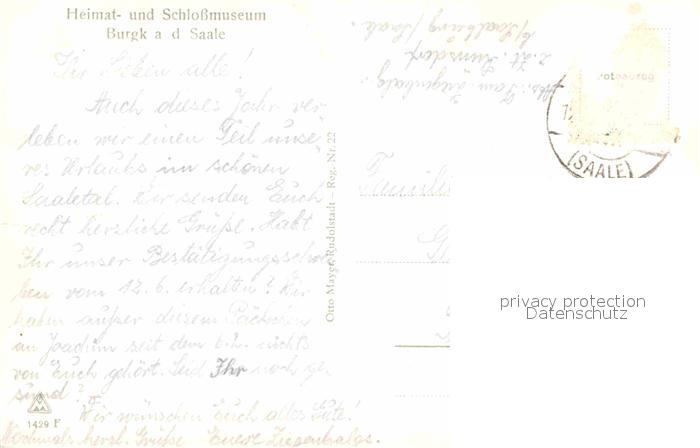 Heimat- und Schloßmuseum
Burgk a d Saale
Ihr Lieben alle!
Auch dieses Jahr ver-
leben wir einen Teil unse-
res Urlaubs im schönen
Saaletal. Wir senden Euch
recht herzliche Grüße. Habt
Ihr unser Bestätigungsschrei-
ben vom 12.6. erhalten? Wir
haben außer diesem Päckchen
an Joachim seit dem nichts
von Euch gehört. Seid Ihr noch ge-
sund?
Wir wünschen Euch alles Gute!
Nochmals herzl. Grüße Euere Ziegenbalgs.
1429 F
Otto Mayer, Rudolstadt – Reg. Nr. 22
Abs: Fam. Ziegenbalg
z. Zt.
Saalburg / Saale
(SAALE)
Familie
privacy protection
Datenschutz